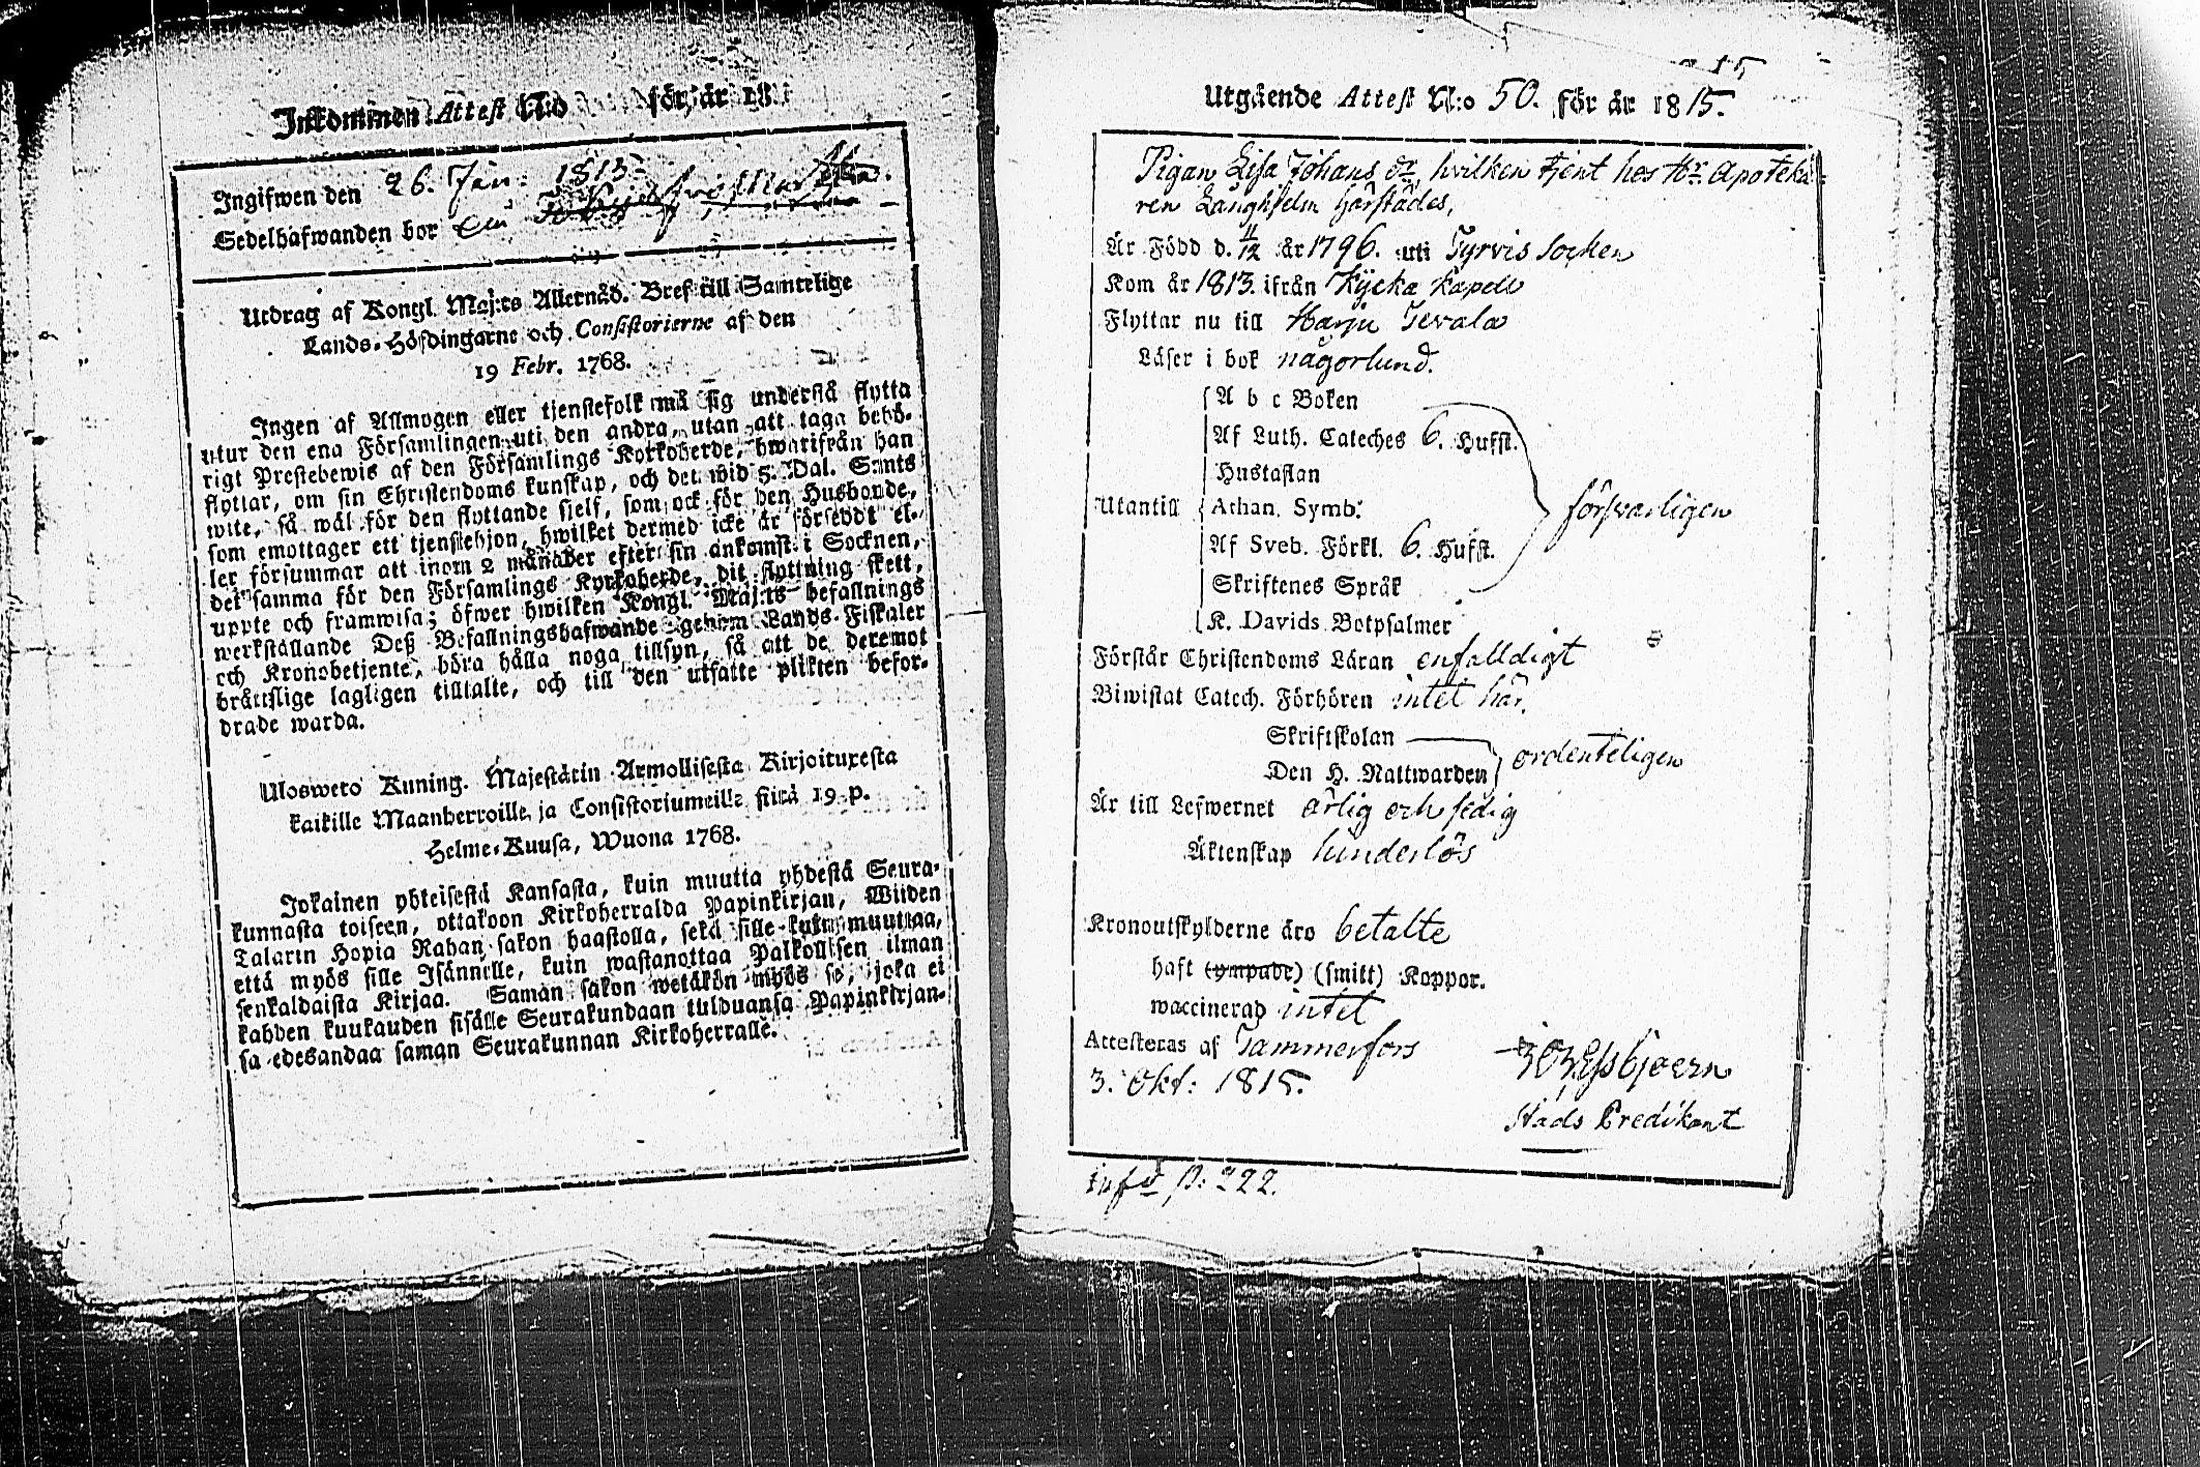 Inkommen Attest N:o för år 18
Ingifwen den 26. Jan: 1813.
Sedelhafwanden bor
Utdrag af Kongl. Maj:ts Allernåd. Bref till Samtelige
Lands-Höfdingarne och Consistorierne af den
19 Febr. 1768.
Ingen af Allmogen eller tjenstefolk må sig understå flytta
utur den ena Församlingen uti den andra, utan att taga behö-
rigt Prestebewis af den Församlings Kyrkoherde, hwarifrån han
flyttar, om sin Christendoms kunskap, och det wid 5. Dal. S:mts
wite, så wäl för den flyttande sjelf, som ock för den Husbonde,
som emottager ett tjenstehjon, hwilket dermed icke är försedt el-
ler försummar att inom 2 månader efter sin ankomst i Socknen,
det samma för den Församlings Kyrkoherde, dit flyttning skett,
uppte och framwisa; öfwer hwilken Kongl. Maj:ts befallnings
werkställande Deß Befallningshafwande genom Lands-Fiskaler
och Kronobetjente, böra hålla noga tillsyn, så att de deremot
bråttslige lagligen tilltalte, och till den utsatte plikten befor-
drade warda.
Ulosweto Kuning. Majestätin Armollisesta Kirjoituxesta
kaikille Maanherroille ja Consistoriumeille siitä 19 p.
Helme-Kuusa, Wuona 1768.
Jokainen yhteisestä Kansasta, kuin muutta yhdestä Seura-
kunnasta toiseen, ottakoon Kirkoherralda Papinkirjan, Wiiden
Talarin Hopia Rahan sakon haastolla, sekä sille kuin muuttaa,
että myös sille Isännälle, kuin wastanottaa Palkollisen ilman
senkaldaista Kirjaa. Saman sakon wetäkön myös se, joka ei
kahden kuukauden sisälle Seurakundaan tulduansa Papinkirjan-
sa edesandaa saman Seurakunnan Kirkoherralle.
Utgående Attest N:o 50. för år 1815.
Pigan Lisa Johans dr, hvilken tjent hos Hr Apoteka=
ren Långhjelm härstädes,
Är Född d. 11/12 år 1796. uti Tyrvis Socken
Kom år 1813. ifrån Kycka Kapell
Flyttar nu till Harju Tevala
Läser i bok någorlund.
A b c Boken
Af Luth. Cateches 6. Hufst.
Hustaflan
Utantill Athan. Symb: försvarligen
Af Sveb. Förkl. 6. Hufst.
Skriftenes Språk
K. Davids Botpsalmer
Förstår Christendoms Läran enfalldigt
Biwistat Catech. Förhören intet här.
Skriftskolan
Den H. Nattwarden ordenteligen
Är till Lefwernet ärlig och sedig
Äktenskap hinderlös
Kronoutskylderne äro betalte
haft (ympade) (smitt) Koppor.
waccinerad intet
Attesteras af Tammerfors
3. Okt: 1815.
Stads Predikant
p: 222.